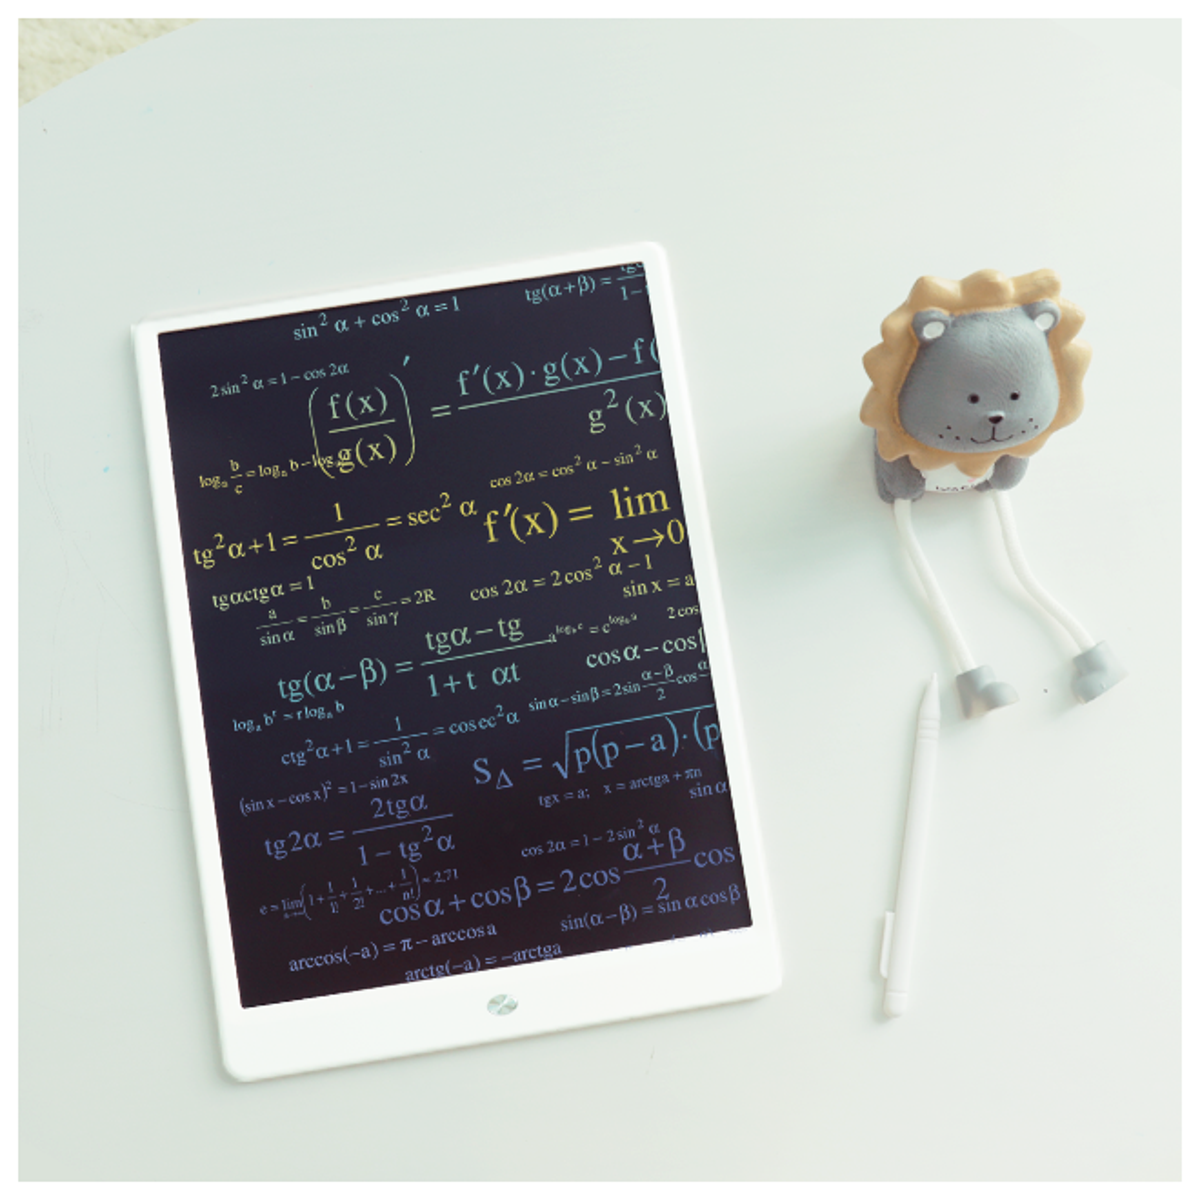 sin² α + cos² α = 1
tg(α+β) =
1−
2 sin² α = 1 − cos 2α
(f(x)/g(x))′ = f′(x)·g(x) − f(
g²(x)
logₐ b/c = logₐ b − logₐ
cos 2α = cos² α − sin² α
tg²α+1 = 1/cos² α = sec² α
f′(x) = lim
x→0
tgαctgα = 1
cos 2α = 2 cos² α − 1
sin x = a
a/sin α = b/sin β = c/sin γ = 2R
tg(α−β) = tgα − tg / 1 + t αt
2 cos
cos α − cos
logₐ bʳ = r logₐ b
sin α − sin β = 2 sin α−β/2 cos
ctg²α+1 = 1/sin² α = cosec²α
S△ = √p(p − a)·(p
(sin x − cos x)² = 1 − sin 2x
tgx = a; x = arctga + πn
sin α
tg2α = 2tgα / 1 − tg²α
cos 2α = 1 − 2 sin² α
e = lim(1 + 1/1! + 1/2! + ... + 1/n!) = 2,71
cos α + cos β = 2cos α+β/2 cos
sin(α−β) = sin α cos β
arccos(−a) = π − arccos a
arctg(−a) = −arctga